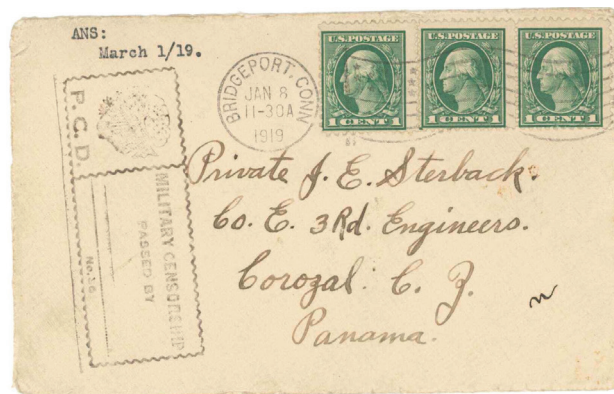 ANS:
March 1/19.
BRIDGEPORT, CONN
JAN 8
11-30A
1919
U.S.POSTAGE
1 CENT 1
U.S.POSTAGE
1 CENT 1
U.S.POSTAGE
1 CENT 1
P. C. D.
MILITARY CENSORSHIP
PASSED BY
Private J. E. Sterback.
Co. E. 3Rd. Engineers.
Corozal. C. Z.
Panama.